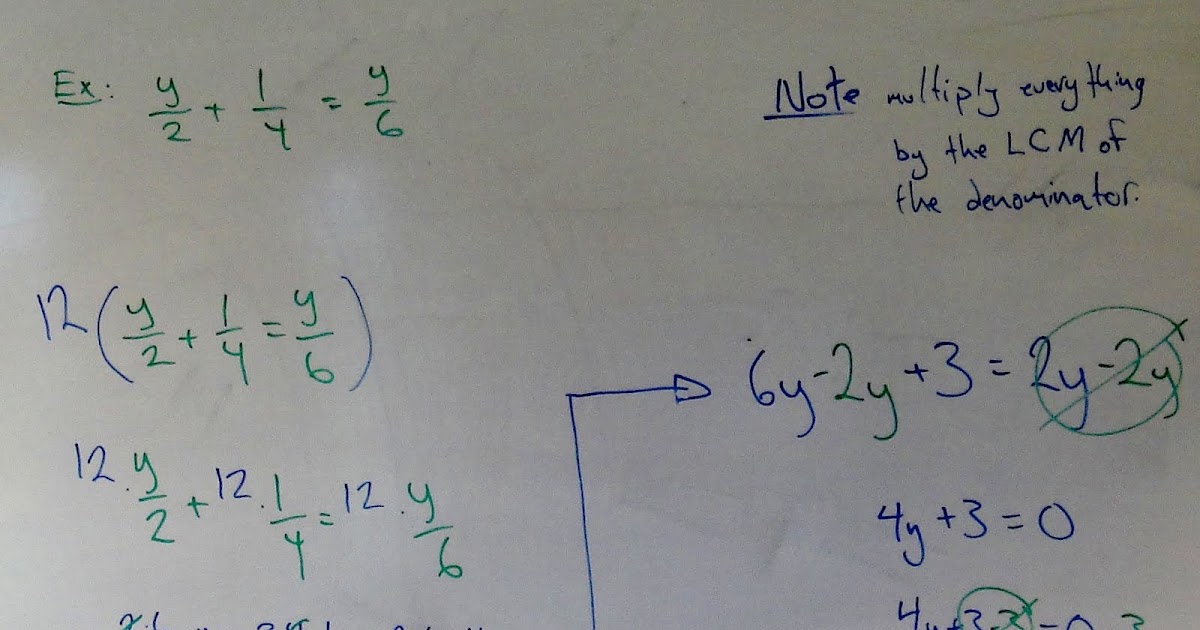 Ex: y/2 + 1/4 = y/6
Note multiply everything
by the LCM of
the denominator.
12(y/2 + 1/4 = y/6)
12·y/2 + 12·1/4 = 12·y/6
6y-2y+3=2y-2y
4y+3=0